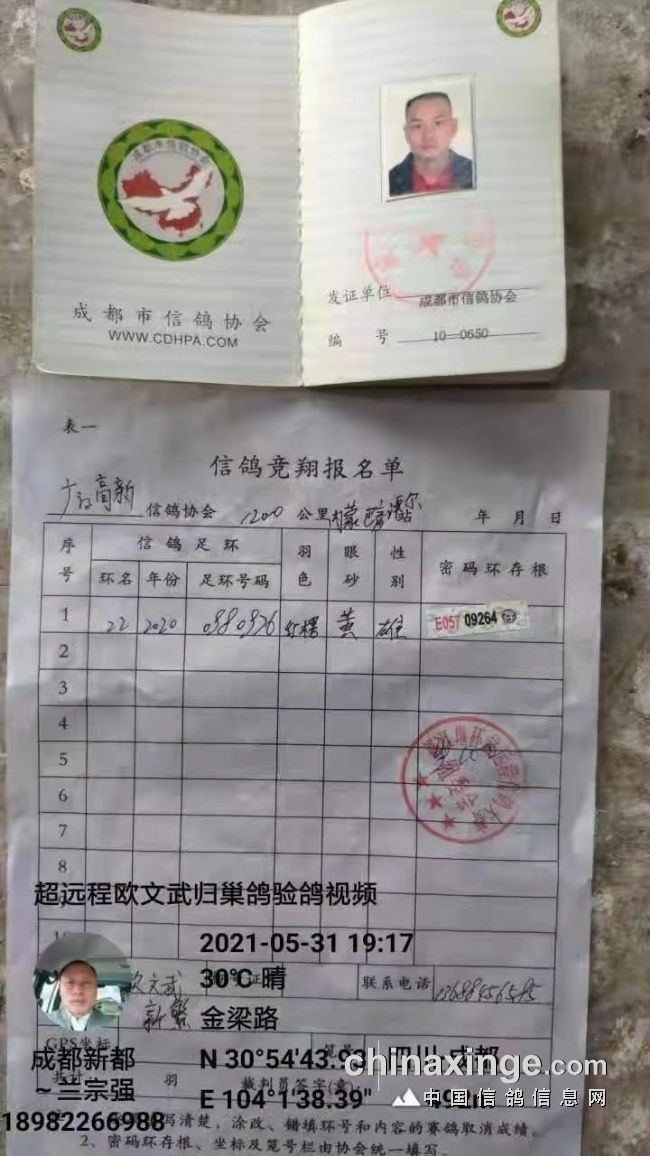 成都市信鸽协会
成都市信鸽协会
WWW.CDHPA.COM
发证单位 成都市信鸽协会
编 号 10—0650
表一
信鸽竞翔报名单
高新 信鸽协会 1200 公里 内蒙 年 月 日
序号 信鸽足环 羽色 眼砂 性别 密码环存根
环名 年份 足环号码
1 22 2020 0980926 红楞 黄 雄 E057 09264
2
3
4
5
6
7
8
超远程欧文武归巢鸽验鸽视频
2021-05-31 19:17
30℃ 晴
欧文武 联系电话 13688456585
新繁 金梁路
GPS坐标 N 30°54'43.93" 四川·成都
成都新都
~三宗强
共计 羽 裁判员签字(章):
E 104°1'38.39" 492m
chinaxinge.com
中国信鸽信息网
18982266988
写清楚，涂改、错填环号和内容的赛鸽取消成绩。
2、密码环存根、坐标及笼号栏由协会统一填写。